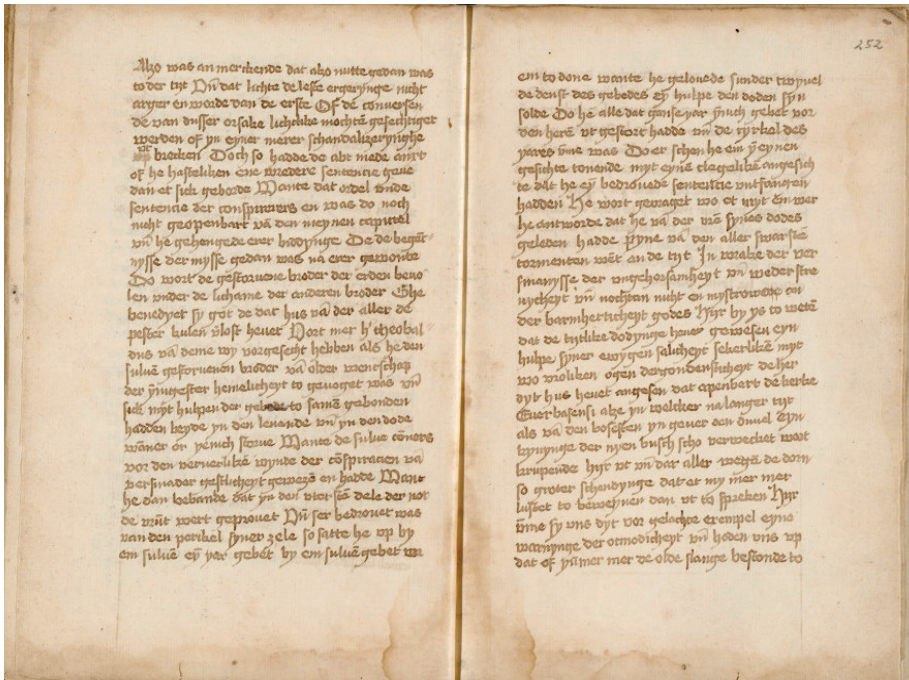 Also was an merckende dat also nutte gedan was
to der tyt Vn̄ dat lichte de leste ergerynge nicht
arger en worde dan de erste Of de conversen
de van dusser orsake lichtlike mochtē gesechtiget
werden of yn eyner merer schandalizerynghe
vt brecken Doch so hadde de abt mede anxt
of he hasteliken ene wredere sentencie geue
dan et sick geborde Wante dat ordel vnde
sentencie der conspirerers en was do noch
nicht geopenbart vā den meynen capittel
vn̄ he gehengede erer biddynge Do de begeff
nysse der mysse gedan was na erer gewonte
Do wort de gestoruene broder der erden beuo
len vnder de lichame der anderen broder Ghe
benedyet sy got de dat hus vā der aller de
pester kulen vlost heuet Vort mer h' theobal
dus vā deme wy vorgesecht hebben als he den
suluē gestoruenon broder vā older vrentschap
der ynnigester hemelicheyt to geuoget was vn̄
sick myt hulpen der gebede to samē gebonden
hadden beyde yn den leuende vn̄ yn den dode
wāner or yenich storue Wante de sulue cōuers
vor den veruerlikē wynde der cōspiracien vā
persuader gestlicheyt gewezē en hadde Want
he dan bekande dat yn den vtersten dele der not
de vrūt wert geprouet Vn̄ ser bedrouet was
van den perikel syner zele so satte he vp by
em suluē ey yar gebet by em suluē gebet vn
252
em to done wante he gelouede sunder twyuel
de denst des gebedes ey hulpe den doden syn
solde Do he alle dat ganse yar ynnich gebet vor
den herē vt gestort hadde vn̄ de cyrkel des
yares vme was Do erschen he em y eynen
gesichte tonende myt eynē clegelikē angesich
te dat he ey bedrouede sentencie vntfangen
hadden He wort geuraget wo et myt em wer
he antworde dat he vā der vre synes dodes
geleden hadde pyne vā den aller swarstē
tormenten wēt an de tyt In wrake der ver
smanysse der vngehorsamheyt vn̄ wederstre
nycheyt vn̄ nochtan nicht en mystrowede
der barmherticheyt godes Hyr by ys to wetē
dat de tytlike dodynge heuet gewesen eyn
hulpe syner ewygen salicheyt sekerlikē myt
wo woliken ogen dergondensticheyt de her
dyt hus heuet angesen dat apenbart dē kerke
Euerbasensi alze yn welcker na langer tyt
als vā den bosesten yn geuer den duuel
bynnynge der nyen busch scho verwecket wort
krupende hyr vt vn̄ dar aller wegē de dorn
so groter schendynge dat et my mer mer
lustet to beweynen dan vt to spreken Hyr
vme sy vns dyt vor gelachte exempel eyne
warnynge der otmodicheyt vn̄ hoden vns vp
dat of ymmer mer de olde slange bestonde to